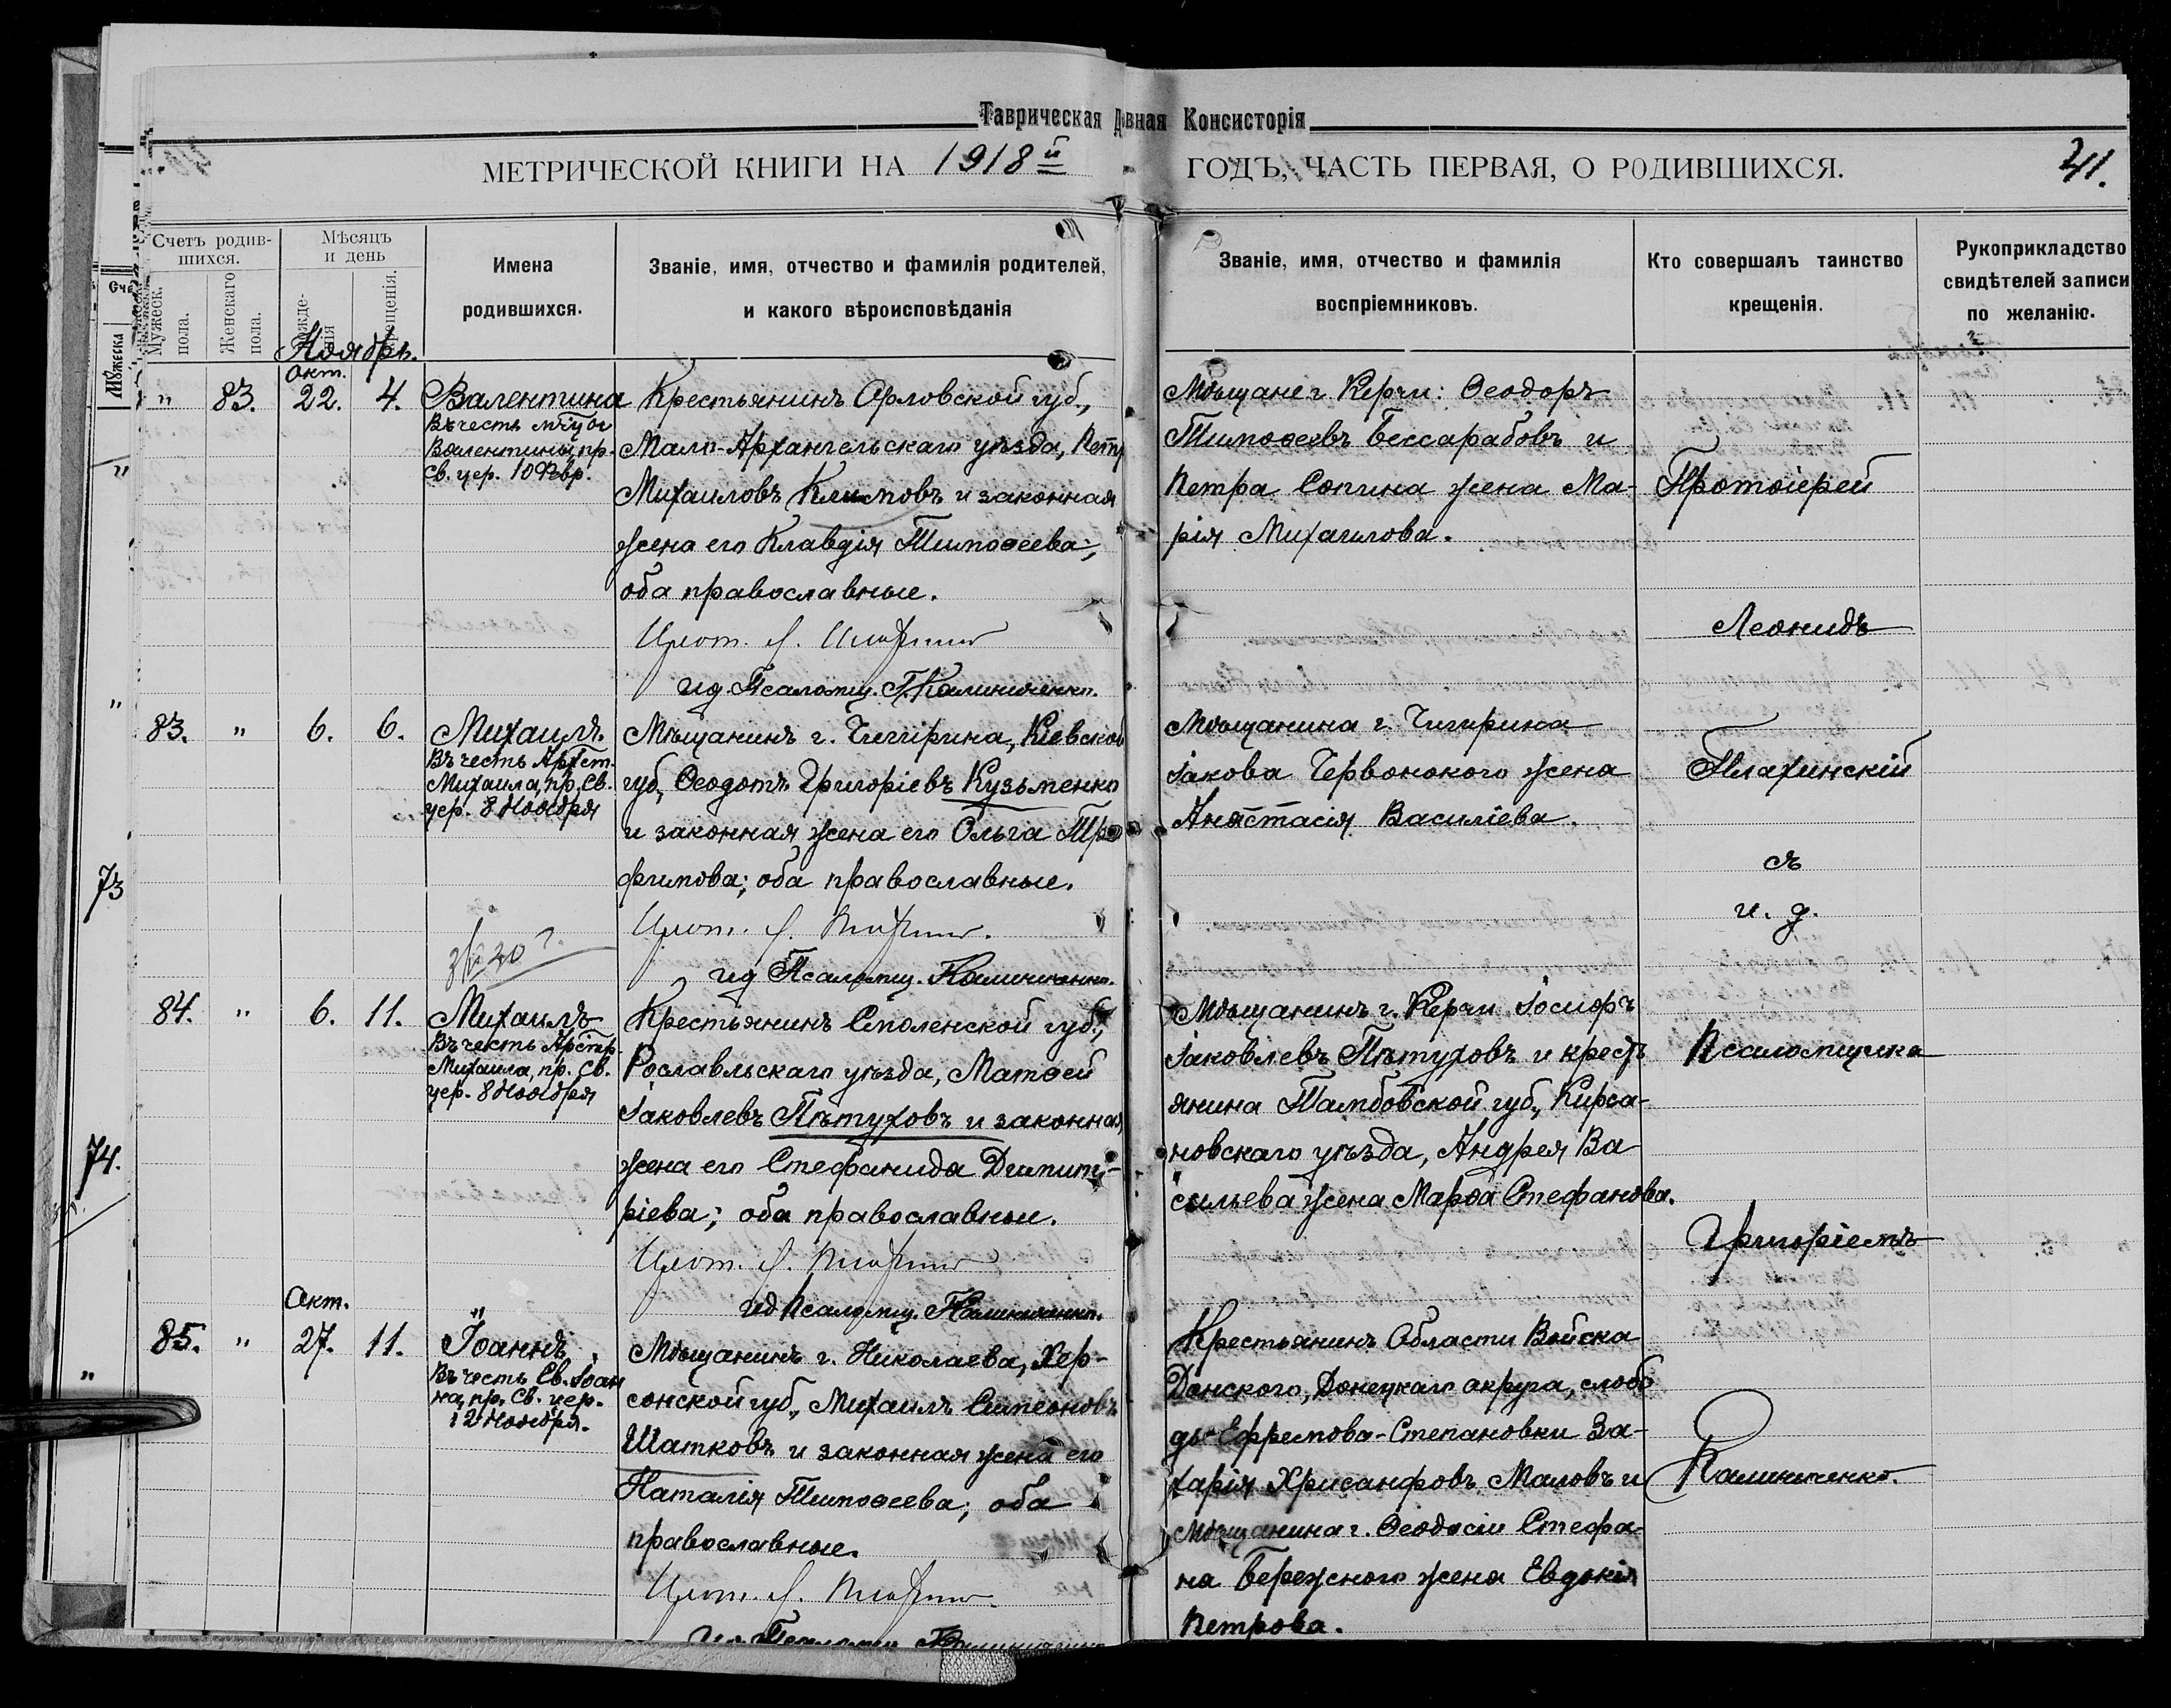 Таврическая Д вная Консисторія
МЕТРИЧЕСКОЙ КНИГИ НА 1918й ГОДЪ, ЧАСТЬ ПЕРВАЯ, О РОДИВШИХСЯ.
41.
Счетъ родив-
шихся.
Мужеск.
пола.
Женскаго
пола.
Мѣсяцъ
и день
Имена
родившихся.
Званіе, имя, отчество и фамилія родителей,
и какого вѣроисповѣданія
Званіе, имя, отчество и фамилія
воспріемниковъ.
Кто совершалъ таинство
крещенія.
Рукоприкладство
свидѣтелей записи
по желанію.
Ноябрь.
Окт.
" 83. 22. 4.
Валентина
Въ честь мчцы
Валентины, пр.
Св. цер. 10 Февр.
Крестьянинъ Орловской губ.,
Мало-Архангельскаго уѣзда, Петр
Михаиловъ Климовъ и законная
жена его Клавдія Тимоѳеева;
оба православные.
Прот. Л.
ид. Псаломщ. Г. Калиниченко.
Мѣщане г. Керчи: Ѳеодоръ
Тимоѳеевъ Бессарабовъ и
Петра Сопина жена Ма-
рія Михаилова.
83. " 6. 6.
Михаилъ.
Въ честь Архст.
Михаила, пр. Св.
цер. 8 Ноября
Мѣщанинъ г. Чигирина, Кіевской
губ., Ѳеодотъ Григоріевъ Кузьменко
и законная жена его Ольга Тро
фимова; оба православные.
Прот. Л.
ид Псаломщ. Калиниченко.
Мѣщанина г. Чигирина
Іакова Червонокого жена
Анастасія Василіева.
84. " 6. 11.
Михаилъ
Въ честь Архстр.
Михаила, пр. Св.
цер. 8 Ноября
Крестьянинъ Смоленской губ.,
Рославльскаго уѣзда, Матѳей
Іаковлевъ Пѣтуховъ и законная
жена его Стефанида Димит-
ріева; оба православные.
Прот. Л.
ид Псаломщ. Калиниченко.
Мѣщанинъ г. Керчи Іосифъ
Іаковлевъ Пѣтуховъ и кресть
янина Тамбовской губ., Кирса-
новскаго уѣзда, Андрея Ва-
сильева жена Марѳа Стефанова.
Окт.
85. " 27. 11.
Іоаннъ
Въ честь Св. Іоан
на, пр. Св. цер.
12 Ноября.
Мѣщанинъ г. Николаева, Хер-
сонской губ., Михаилъ Симеоновъ
Шатковъ и законная жена его
Наталія Тимоѳеева; оба
православные.
Прот. Л.
Ид Псаломщ Калиниченко
Крестьянинъ Области Войска
Донского, Донецкаго округа, слобо
ды Ефремова-Степановки За-
харія Хрисанфовъ Маловъ и
мѣщанина г. Ѳеодосіи Стефа-
на Бережного жена Евдокія
Петрова.
Протоіерей
Леонидъ
Плахинскій
съ
и. д.
Псаломщика
Григоріемъ
Калиниченко.
73
74.